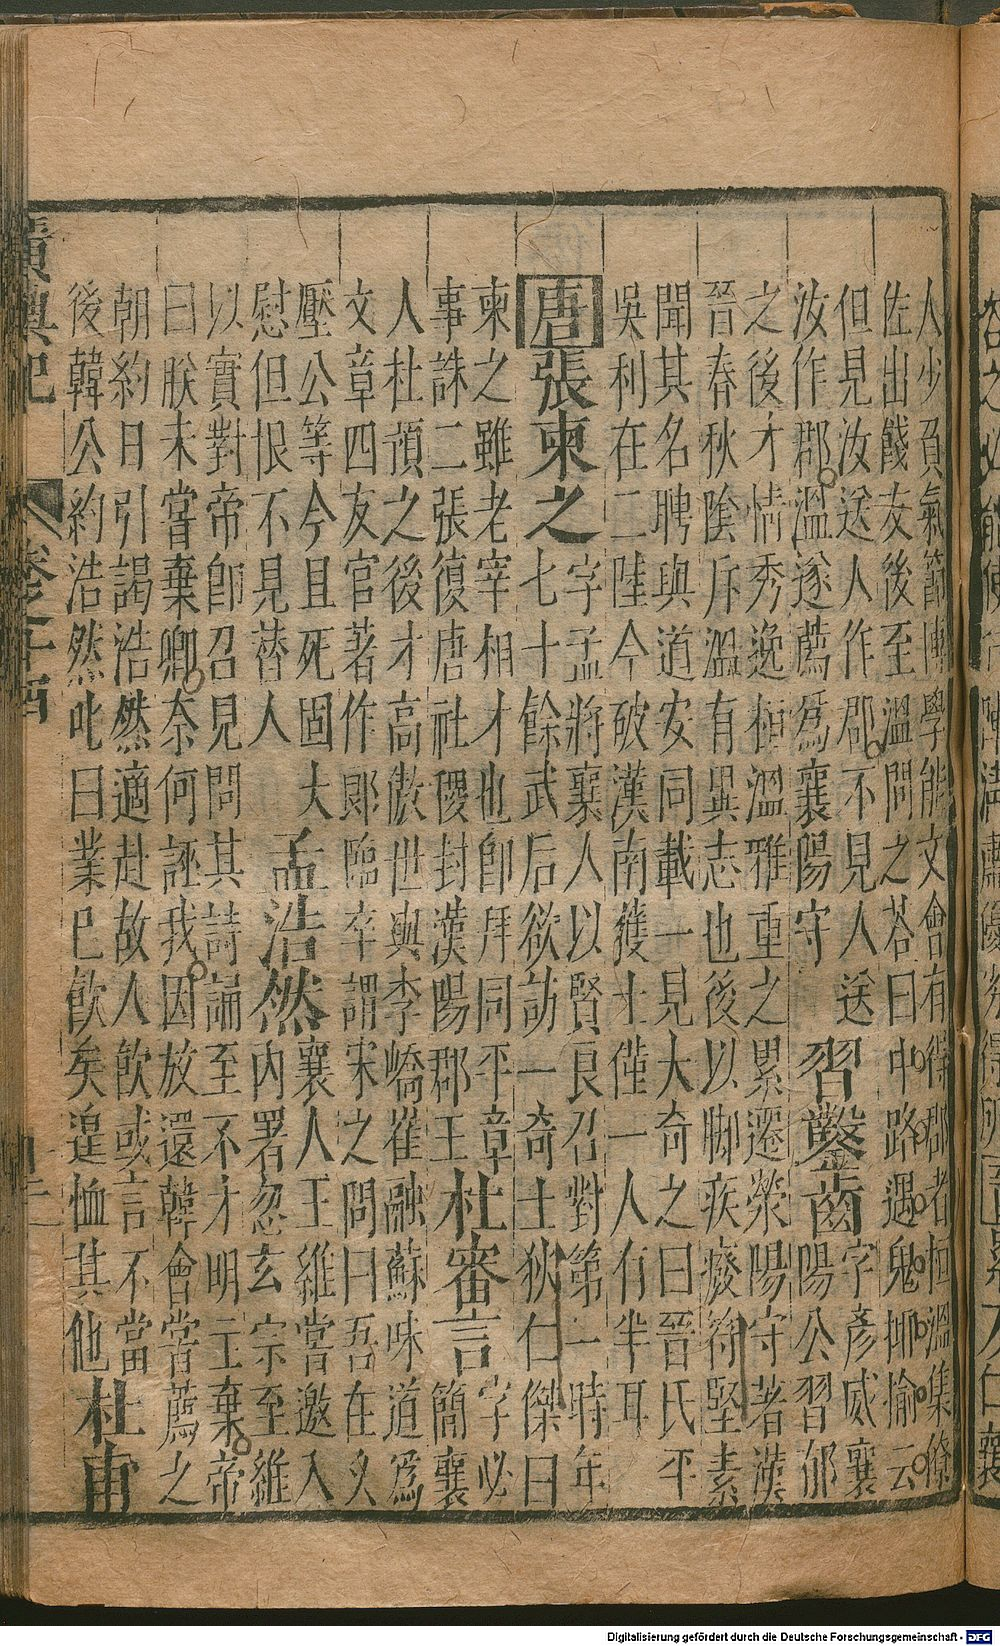 人少負氣節博學能文會有得郡者桓溫集條
佐出餞友後至溫問之荅曰中路遇鬼揶揄云
但見汝送人作郡不見人送
汝作郡溫遂薦爲襄陽守
習鑿齒
字彥威襄
陽公習郁
之後才情秀逸桓溫雅重之累遷滎陽守著漢
晉春秋陰斥溫有異志也後以脚疾癈苻堅素
聞其名聘與道安同載一見大奇之曰晉氏平
吳利在二陸今破漢南獲士僅一人有半耳
唐張柬之
字孟將襄人以賢良召對第一時年
七十餘武后欲訪一奇士狄仁傑曰
柬之雖老宰相才也卽拜同平章
事誅二張復唐社稷封漢陽郡王
杜審言
字必
簡襄
人杜預之後才高傲世與李嶠崔融蘇味道爲
文章四友官著作郎臨卒謂宋之問曰吾在久
壓公等今且死固大
慰但恨不見替人
孟浩然
襄人王維嘗邀入
內署忽玄宗至維
以實對帝卽召見問其詩誦至不才明主棄帝
曰朕未嘗棄卿奈何誣我因放還韓會嘗薦之
朝約日引謁浩然適赴故人飮或言不當
後韓公約浩然叱曰業已飮矣遑恤其他
杜甫
廣輿記
卷之十四
Digitalisierung gefördert durch die Deutsche Forschungsgemeinschaft - DFG